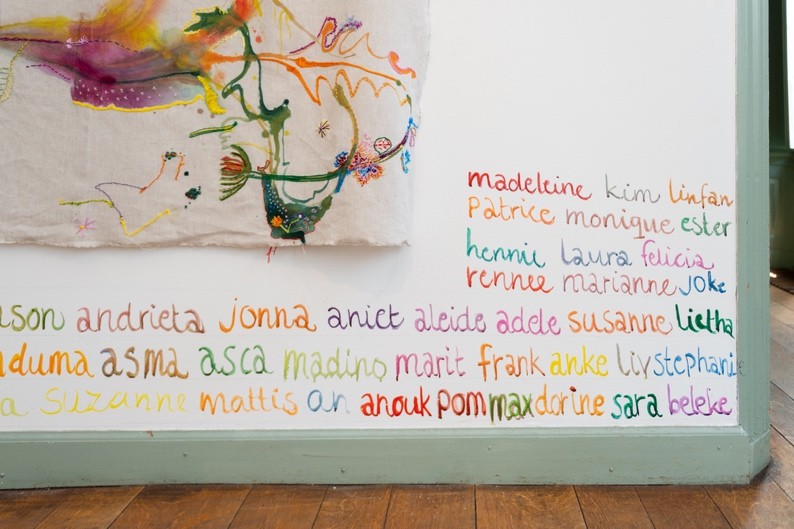 madeleine kim linfan
patrice monique ester
hennie laura felicia
rennee marianne joke
andrieta jonna aniet aleide adele susanne lietha
asma asca madino marit frank anke liv stephanie
suzanne mattis an anouk pom max dorine sara beleke